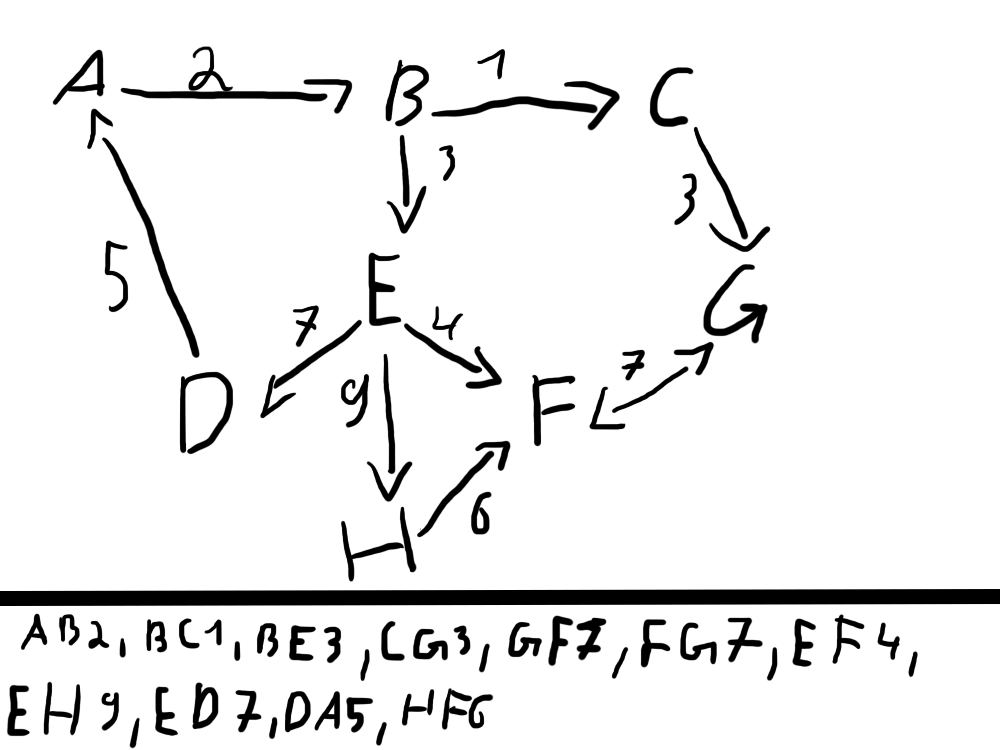 A 2 B 1 C
3
3
E
G
5
7 4
7
D
9
F
6
H
AB2, BC1, BE3, CG3, GF7, FG7, EF4,
EH9, ED7, DA5, HF6